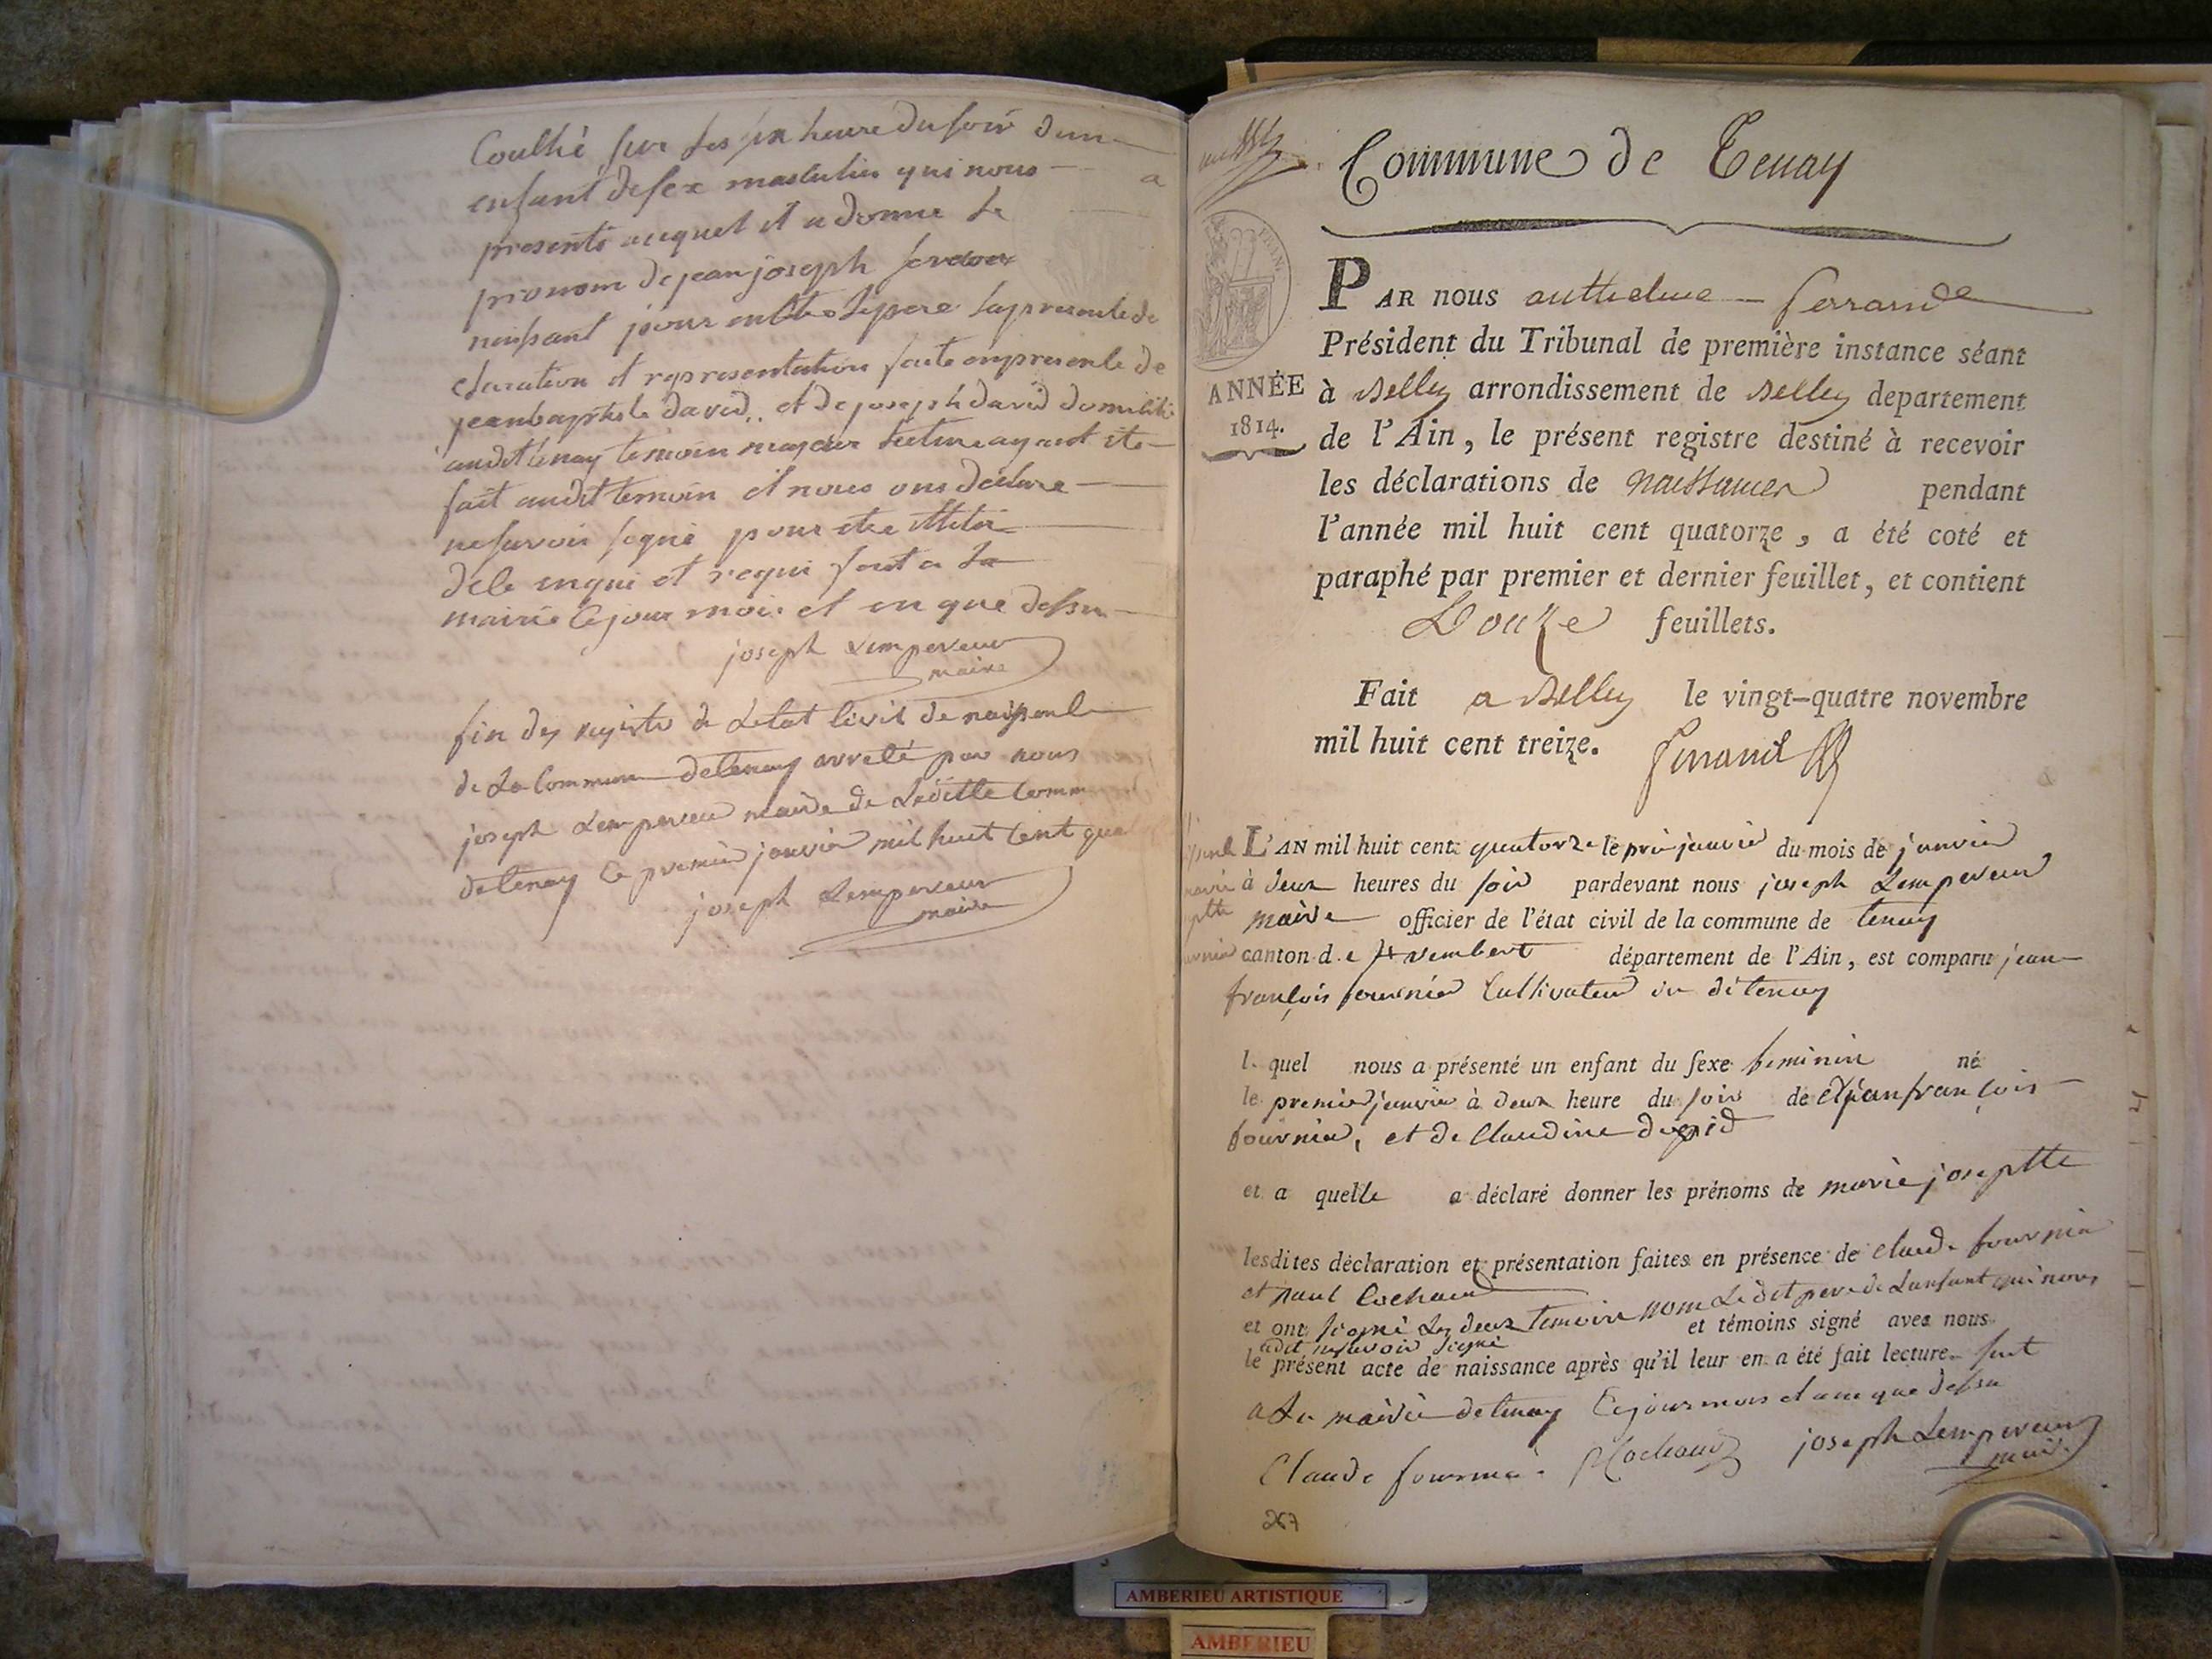 Couché sur les six heure du soir dun
enfant de sexe masculin qui nous
presenté auquel il a donné le
prénom de jean joseph
naissant jour entre le pere la presente de
claration et representation faite en presente de
jean baptiste david.. et de joseph david domicilié
audit tenay temoin majeur lecture ayant ete
fait audit temoin il nous ons declare
ne savoir signé pour etre
dele enqui et requi fait a la
mairie le jour mois et en que dessu
joseph Lempereur
maire
fin des registre de Letat livil de naissance
de La Commune de tenay arreté par nous
joseph Lempereur maire de Leditte Comm
de tenay le premier janvier mil huit cent qua
joseph Lempereur
maire
Commune de Tenay
PAR nous anthelme ferrand
Président du Tribunal de première instance séant
à Belley arrondissement de Belley departement
de l'Ain, le présent registre destiné à recevoir
les déclarations de naissances pendant
l'année mil huit cent quatorze, a été coté et
paraphé par premier et dernier feuillet, et contient
Douze feuillets.
Fait a Belley le vingt-quatre novembre
mil huit cent treize. ferrand
ANNÉE
1814.
L'AN mil huit cent quatorze le pri janvier du mois de janvier
à deux heures du soir pardevant nous joseph Lempereur
maire officier de l'état civil de la commune de tenay
canton de St rembert département de l'Ain, est comparu jean
françois fournier Cultivateur de tenay
l. quel nous a présenté un enfant du sexe feminin né
le premier janvier à deux heure du soir de jean françois
fournier, et de Claudine
et a quelle a déclaré donner les prénoms de marie joseptte
lesdites déclaration et présentation faites en présence de claude fournier
et paul Cochaud
et ont signé les deux temoin non Ledit pere de Lenfant qui nous
adit ne savoir signé
et témoins signé avec nous
le présent acte de naissance après qu'il leur en a été fait lecture. fait
a La mairie de tenay le jour mois et an que dessu
Claude fournier PCochaud joseph Lempereur
maire
267
AMBERIEU ARTISTIQUE
AMBERIEU